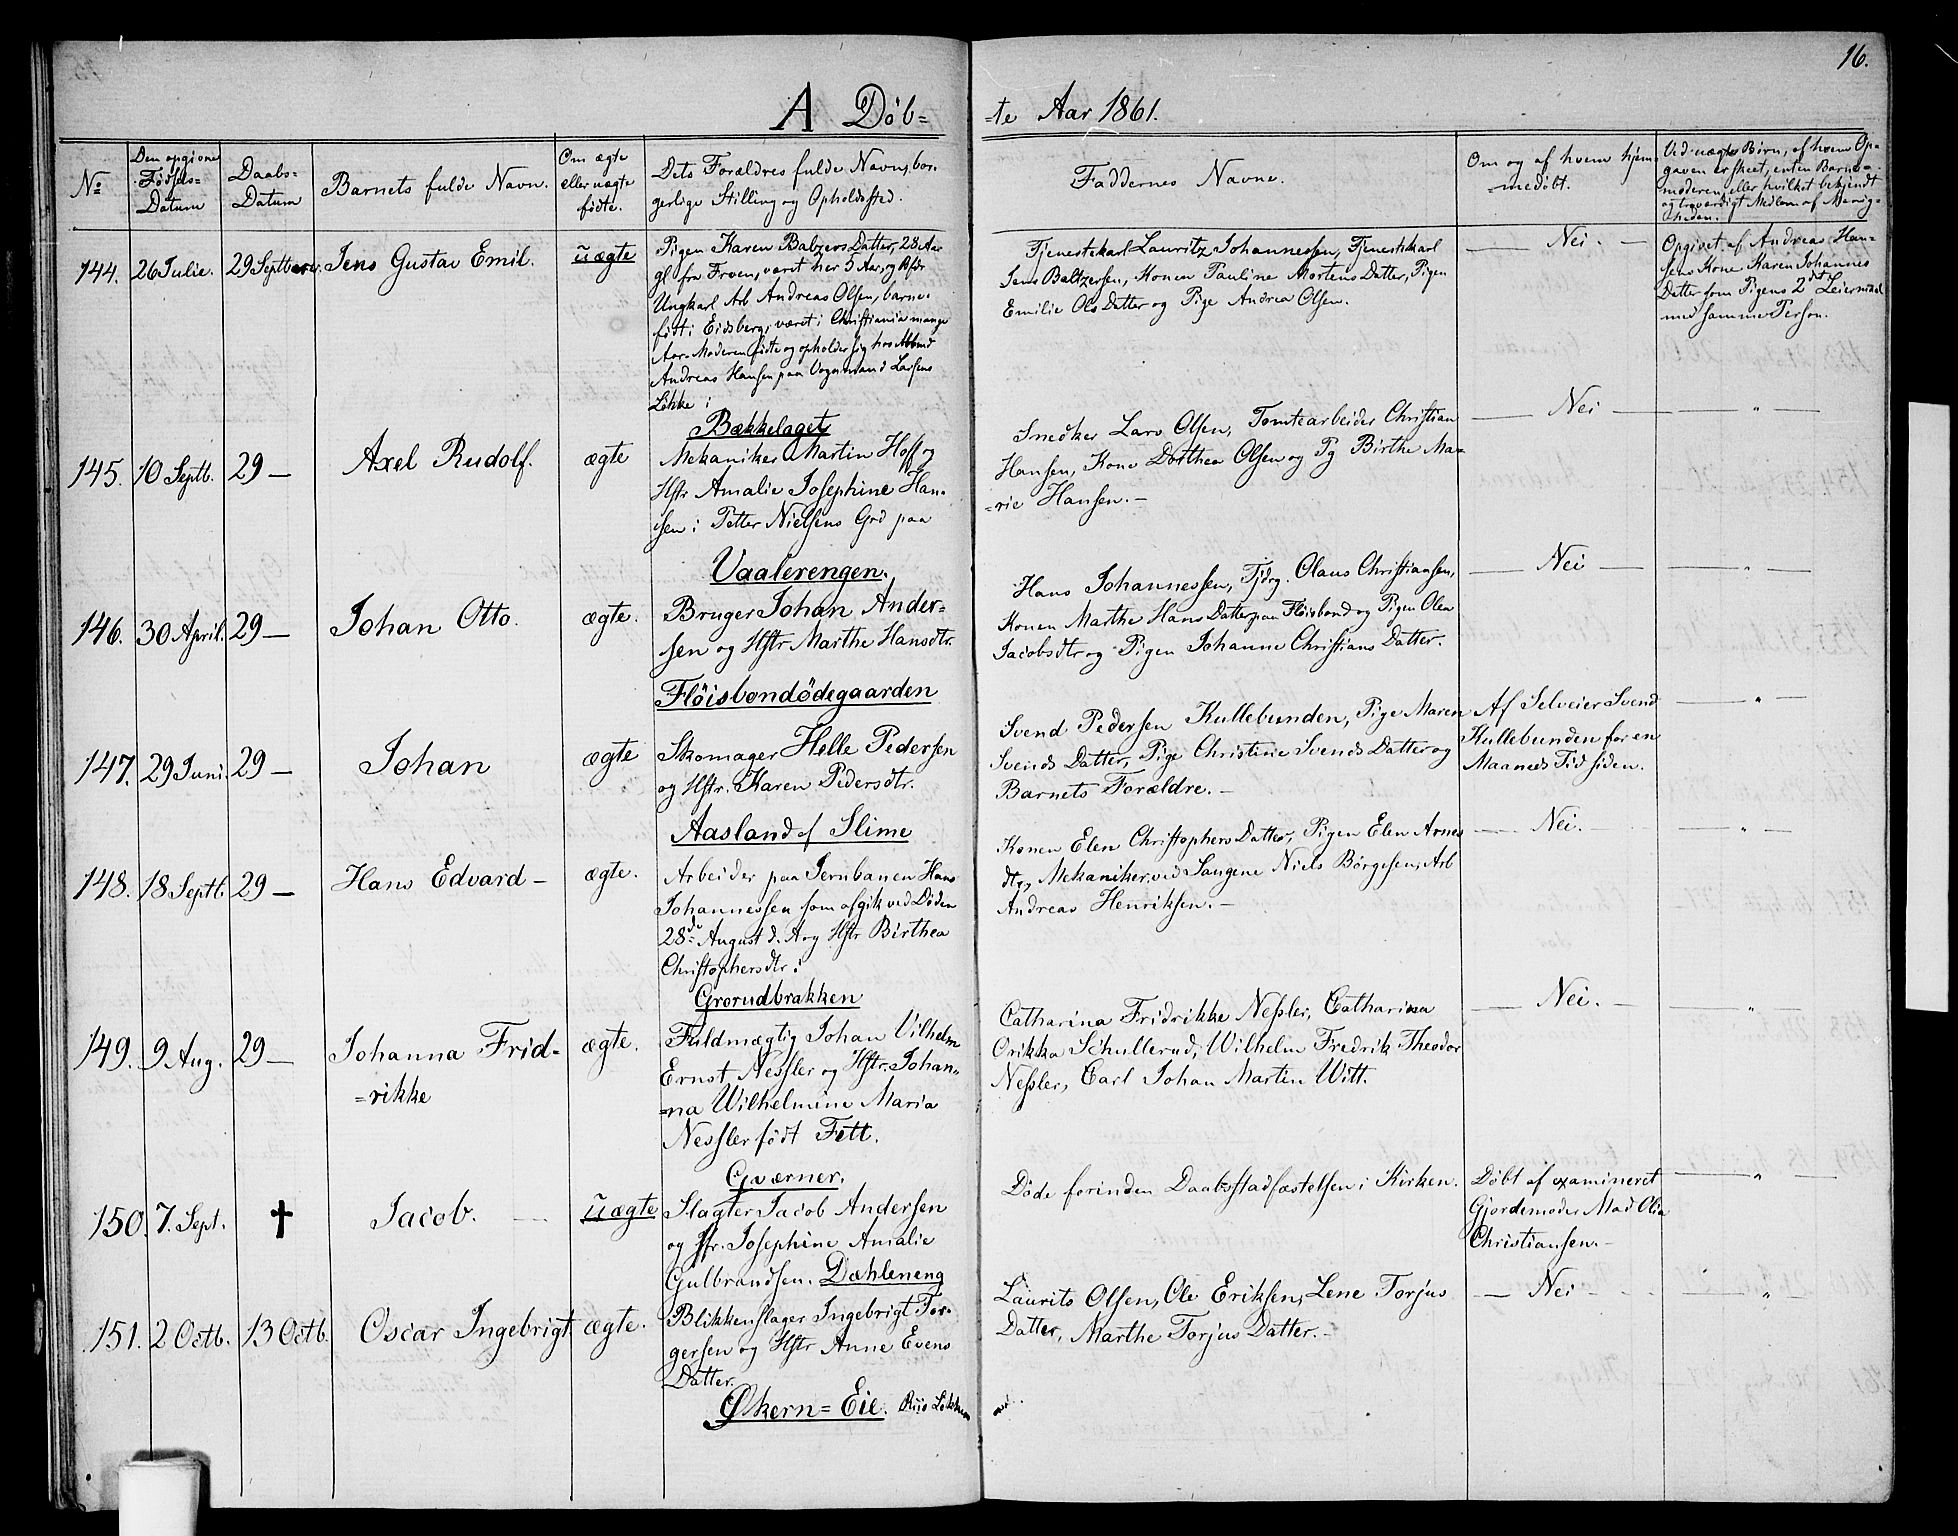 16.
A Døb=
=te Aar 1861.
No
Den opgivne
Fødsels-
Datum
Daabs-
Datum
Barnets fulde Navn.
Om ægte
eller uægte
fødte.
Dets Forældres fulde Navne, bor-
gerlige Stilling og Opholdssted.
Faddernes Navne.
Om og af hvem hjem-
medøbt.
Ved uægte Børn, af hvem Op-
gaven er skeet, enten Barne-
moderen, eller hvilket bekjendt
og troværdigt Medlem af Menig-
heden.
144. 26 Julie. 29 Septbr. Jens Gustav Emil. uægte
Pigen Karen Balzers Datter, 28 Aar
gl fra Froen, været her 5 Aar, og
Ungkarl Arb Andreas Olsen, barne-
født i Eidsberg, været i Christiania mange
Aar. Moderen fødte og opholder sig hos
Andreas Hansen paa Vognmand Larsens
Løkke i
Bækkelaget
Tjenestekarl Lauritz Johannessen, Tjenestekarl
Jens Baltzersen, Konen Pauline Mortens Datter, Pigen
Emilie Ols Datter og Pige Andrea Olsen.
— Nei. —
Opgivet af Andreas Han-
sens Kone Karen Johannes
Datter som Pigens 2det Leiermaal
med samme Person.
145. 10 Septb. 29 — Axel Rudolf. ægte
Mekaniker Martin Hoff og
Hstr Amalie Josephine Han-
sen i Petter Nielsens Grd paa
Vaalerengen.
Snedker Lars Olsen, Tomtearbeider Christian
Hansen, Kone Dorthea Olsen og Pg Birthe Ma=
=rie Hansen. —
— Nei — — " —
146. 30 April. 29 — Johan Otto. ægte.
Bruger Johan Ander=
sen og Hstr Marthe Hansdtr.
Fløisbondødegaarden
Hans Johannessen, Tjdrg. Olaus Christiansen,
Konen Marthe Hans Datter paa Fløisbond og Pigen Olea
Jacobsdtr og Pigen Johanne Christians Datter.
— Nei — — " —
147. 29 Juni. 29 — Johan ægte
Skomager Helle Pedersen
og Hstr. Karen Pedersdtr.
Aasland af Slime
Svend Pedersen Kullebunden, Pige Maren
Svends Datter, Pige Christine Svends Datter og
Barnets Forældre. —
Af Selveier Svend
Kullebunden for en
Maaneds Tid siden.
— " —
148. 18 Septb. 29 — Hans Edvard — ægte.
Arbeider paa Jernbanen Hans
Johannessen som afgik ved Døden
28de August d. A og Hstr Birthea
Christophersdtr i
Grorudbrakken
Konen Elen Christophers Datter, Pigen Elen Arnes
dtr, Mekaniker ved Saugene Niels Börgesen, Arb
Andreas Henriksen. —
— Nei. — — " —
149. 9 Aug. 29 — Johanna Frid=
=rikke
ægte.
Fuldmægtig Johan Vilhelm
Ernst Nessler og Hstr. Johan=
=na Wilhelmine Maria
Nessler født Fett.
Gværner.
Catharina Fridrikke Nessler, Catharina
Orikka Schullerud, Wilhelm Fredrik Theodor
Nessler, Carl Johan Martin Witt.
— Nei. — — " —
150. 7. Sept. † Jacob. — uægte
Slagter Jacob Andersen
og Jfr. Josephine Amalie
Gulbrandsen. Dæhleneng
Døde forinden Daabsstadfæstelsen i Kirken.
Døbt af examineret
Gjordemoder Mad Olia
Christiansen. —
— " —
151. 2 Octb. 13 Octb. Oscar Ingebrigt ægte.
Blikkenslager Ingebrigt Tor-
gersen og Hstr Anne Evens
Datter.
Økern=Eie. Riis Løkken
Laurits Olsen, Ole Eriksen, Lene Torjus
Datter, Marthe Torjus Datter. —
— Nei — — " —